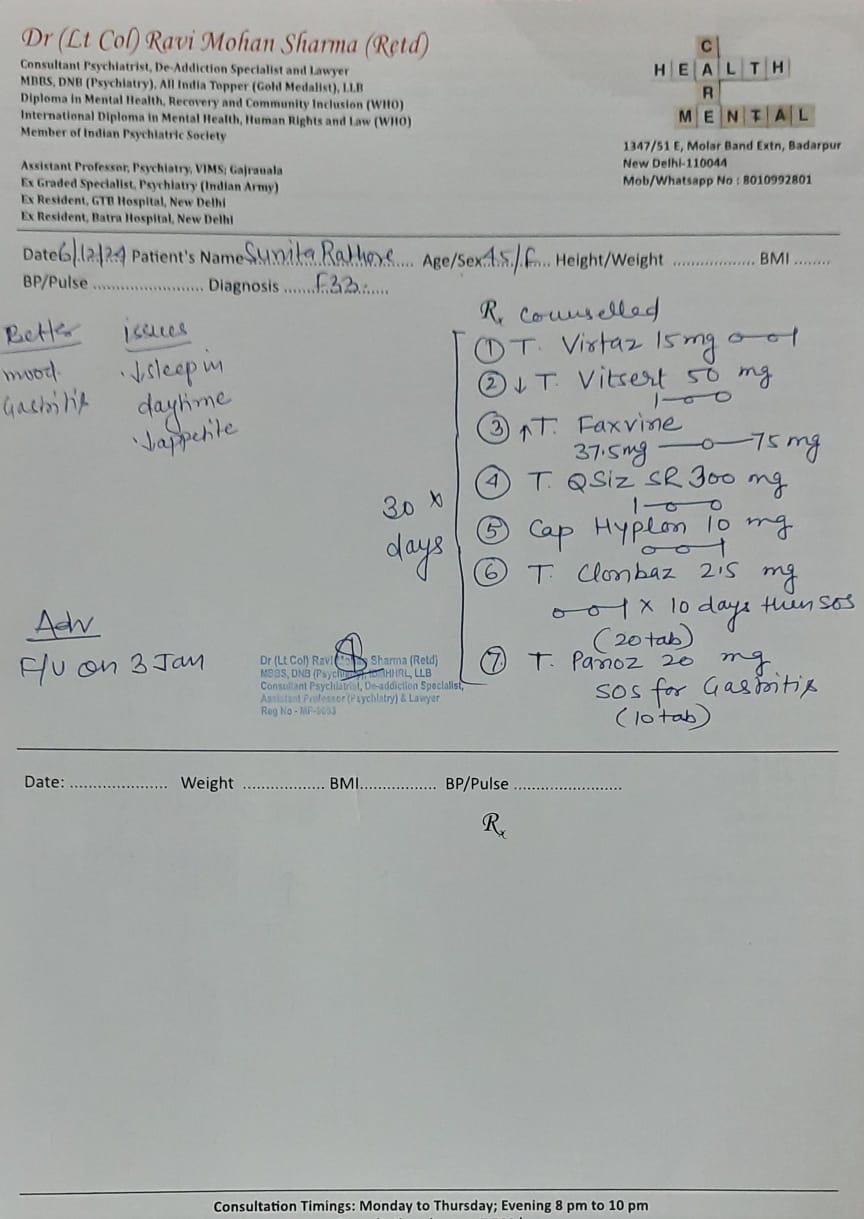 Dr (Lt Col) Ravi Mohan Sharma (Retd)
Consultant Psychiatrist, De-Addiction Specialist and Lawyer
MBBS, DNB (Psychiatry), All India Topper (Gold Medalist), LLB
Diploma in Mental Health, Recovery and Community Inclusion (WHO)
International Diploma in Mental Health, Human Rights and Law (WHO)
Member of Indian Psychiatric Society
Assistant Professor, Psychiatry, VIMS; Gajraula
Ex Graded Specialist, Psychiatry (Indian Army)
Ex Resident, GTB Hospital, New Delhi
Ex Resident, Batra Hospital, New Delhi
CARE
HEALTH
MENTAL
1347/51 E, Molar Band Extn, Badarpur
New Delhi-110044
Mob/Whatsapp No : 8010992801
Date 6/12/24 Patient's Name Sunita Rathore Age/Sex 45/F Height/Weight .................. BMI ........
BP/Pulse ........................ Diagnosis ....... F33 .......
Better issues
mood. ↓sleep in
Gastritis daytime
↓appetite
Rx counselled
① T. Virtaz 15mg o-o-1
② ↓ T. Vitsert 50 mg
1-o-o
③ ↑T. Faxvine
37.5mg —o— 75 mg
④ T. QSiz SR 300 mg
1-o-o
⑤ Cap Hyplon 10 mg
o-o-1
⑥ T. Clonbaz 2.5 mg
o-o-1 x 10 days then SOS
(20 tab)
⑦ T. Panoz 20 mg
SOS for Gastritis
(10 tab)
30 x
days
Adv
F/U on 3 Jan
Dr (Lt Col) Ravi Mohan Sharma (Retd)
MBBS, DNB LLB
Consultant Psychiatrist, De-addiction Specialist,
Assistant Professor (Psychiatry) & Lawyer
Reg No -
Date: ..................... Weight .................. BMI................. BP/Pulse ........................
Rx
Consultation Timings: Monday to Thursday; Evening 8 pm to 10 pm